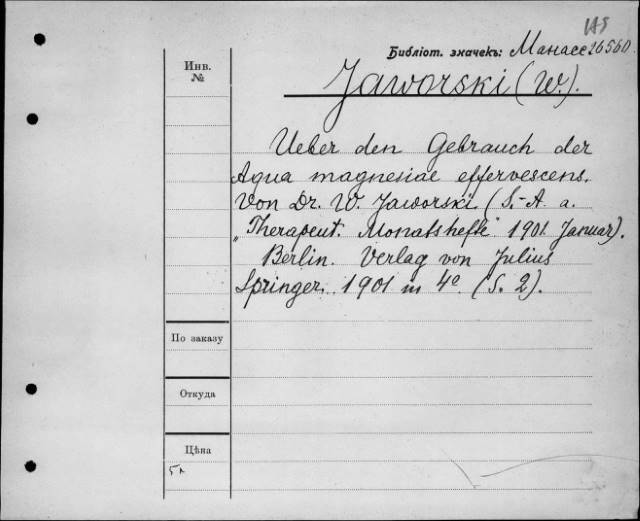 Библіот. значекъ: Манасс 26560
Инв.
№
Jaworski (W.).
Ueber den Gebrauch der
Aqua magnesiae effervescens.
Von Dr. W. Jaworski. (S.-A. a.
„Therapeut. Monatshefte" 1901. Januar).
Berlin. Verlag von Julius
Springer. 1901 in 4º. (S. 2).
По заказу
Откуда
Цѣна